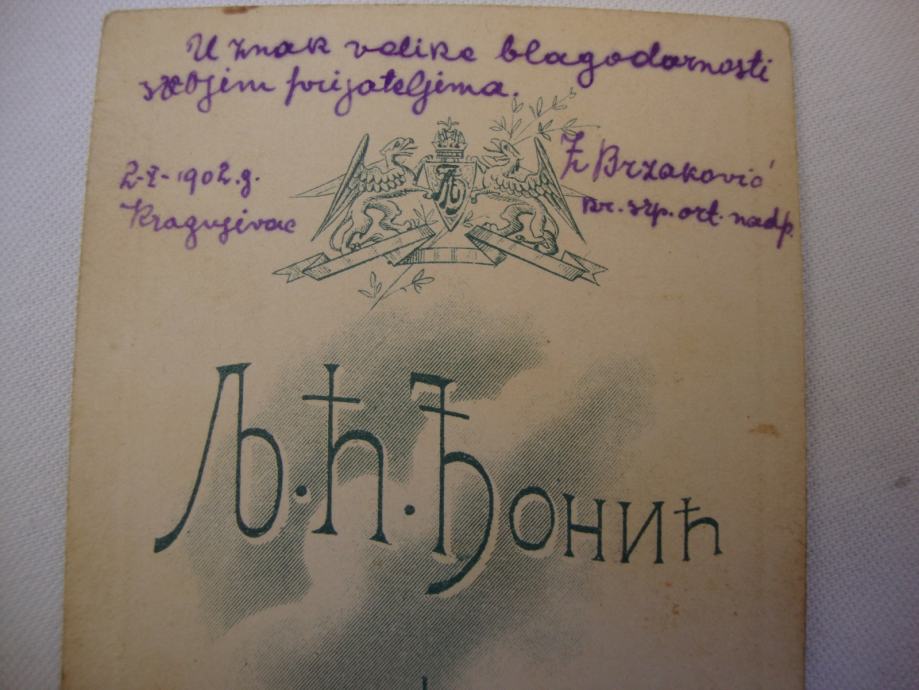 U znak velike blagodarnosti
svojim prijateljima.
2-I-1902.g.
Kragujevac
Ž Brzaković
kr. srp. art. nadp.
Љ.Ћ.Ђонић